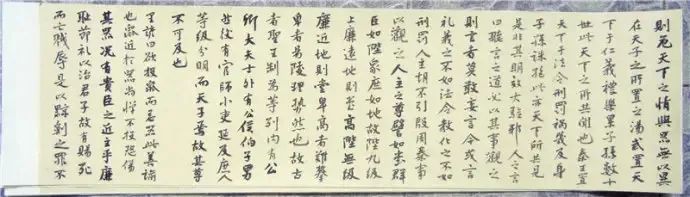 則危天下之情與器無以異
在天子之所置之湯武置天
下于仁義禮樂累子孫數十
世此天下之所共聞也秦王置
天下于法令刑罰禍幾及身
子孫誅絕此亦天下所共見
是非其明效大驗邪人之言
曰聽言之道必以其事觀之
則言者莫敢妄言今或言
禮義之不如法令教化之不如
刑罰人主胡不引殷周秦事
以觀之人主之尊譬如堂群
臣如陛衆庶如地故陛九級
上廉遠地則堂高陛無級
廉近地則堂卑高者難攀
卑者易陵理勢然也故古
者聖王制為等列内有公
卿大夫士外有公侯伯子男
然後有官師小吏延及庶人
等級分明而天子焉故其尊
不可及也
里諺曰欲投鼠而忌器此善諭
也鼠近於器尚憚不投恐傷
其器况有貴臣之近主乎廉
恥節禮以治君子故有賜死
而亡戮辱是以黥劓之罪不